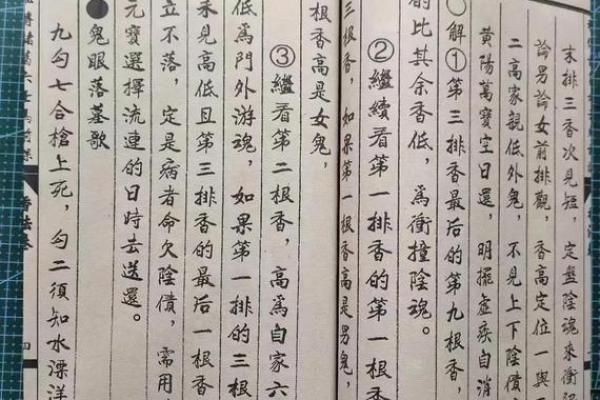 末排三香次見短，定盤陰魂來衝
論男論女前排觀，香高定位一與
二高家親低外鬼，不見上下陰債
黃陽萬寶空日還，明擺虛疾自消
○解①第三排香最后的第九根香，
的比其余香低，為衝撞陰魂。
②繼續看第一排香的第一根香
三根香，如果第一根香高是男鬼，
根香高是女鬼，
③繼看第二根香，高為自家六
低為門外游魂，如果第一排的三根
未見高低且第三排香的最后一根香
立不落，定是病者命欠陰債，需用
元寶選擇流連的日時去送還。
●鬼眼落墓歌
九勾七合槍上死，勾二須知水漂洋
四